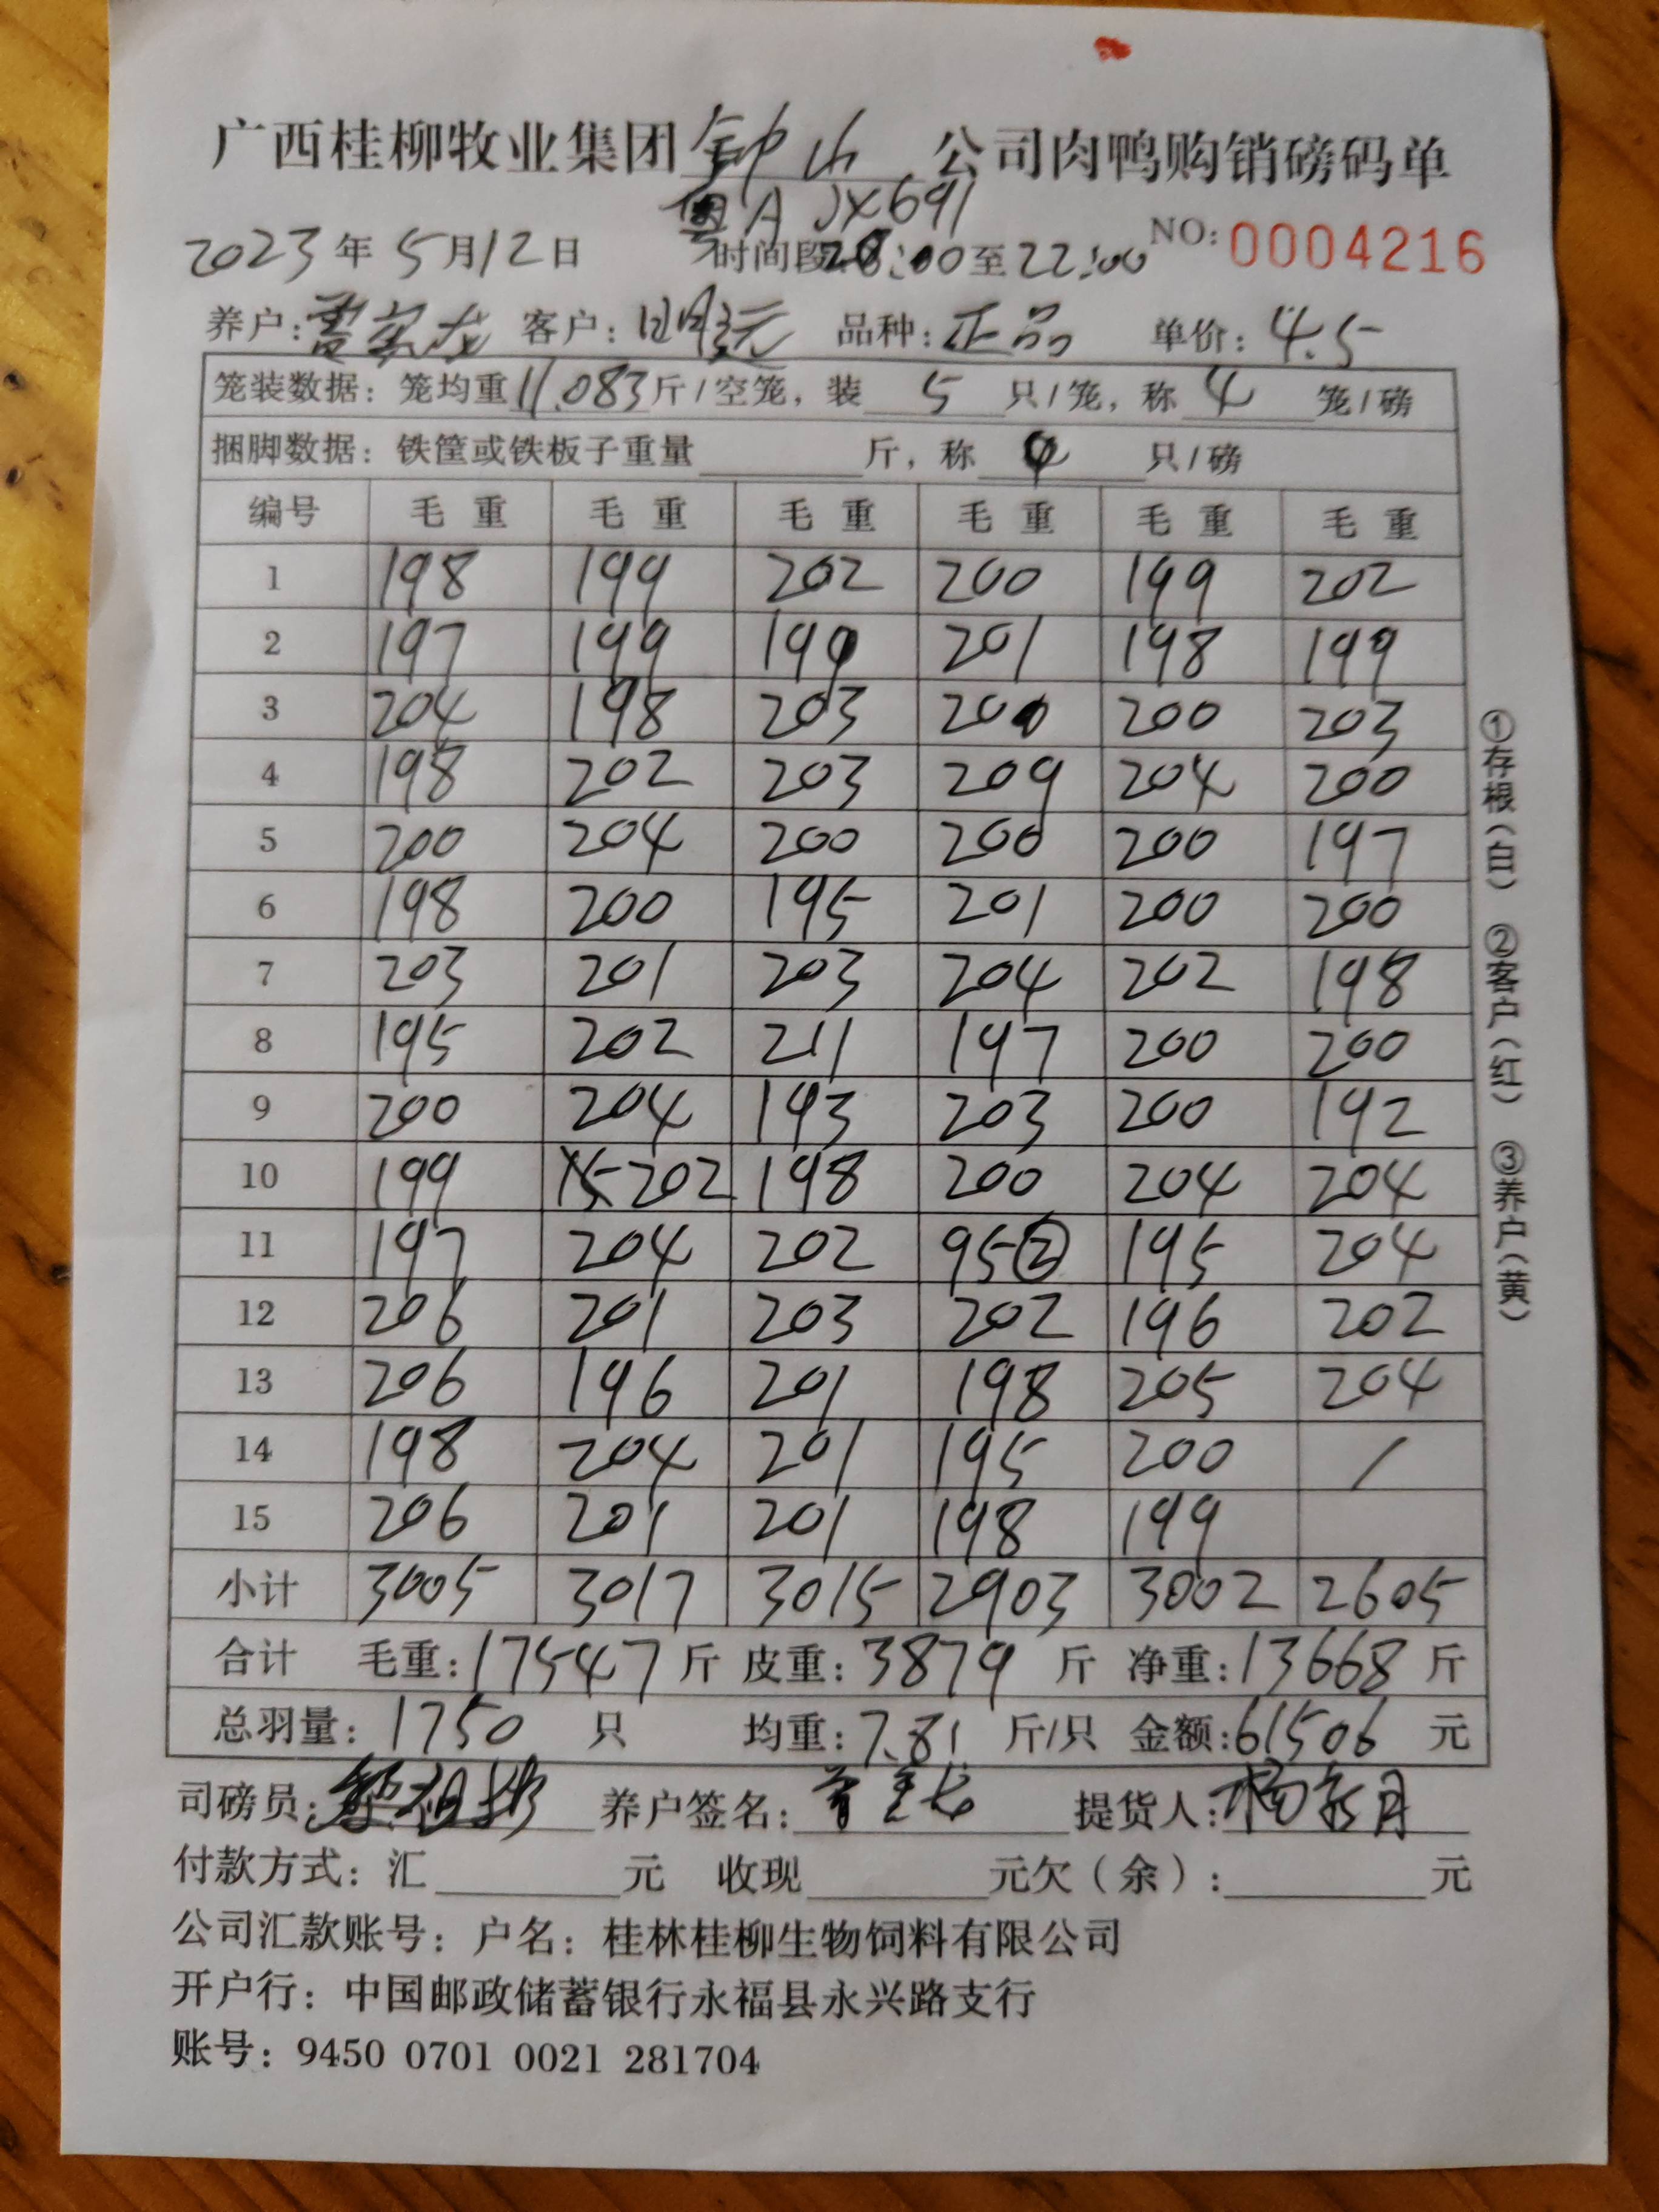 广西桂柳牧业集团钟山公司肉鸭购销磅码单
粤A JX691
2023年5月12日 时间段:20:00至22:00 NO:0004216
养户: 客户:明远 品种:正品 单价:4.5
笼装数据:笼均重11.083斤/空笼,装5只/笼,称4笼/磅
捆脚数据:铁筐或铁板子重量 斤,称 只/磅
编号 毛重 毛重 毛重 毛重 毛重 毛重
1 198 199 202 200 199 202
2 197 199 199 201 198 199
3 204 198 203 200 200 203
4 198 202 203 209 204 200
5 200 204 200 200 200 197
6 198 200 195 201 200 200
7 203 201 203 204 202 198
8 195 202 211 197 200 200
9 200 204 193 203 200 192
10 199 202 198 200 204 204
11 197 204 202 95② 195 204
12 206 201 203 202 196 202
13 206 196 201 198 205 204
14 198 204 201 195 200 /
15 206 201 201 198 199
小计 3005 3017 3015 2903 3002 2605
合计 毛重:17547斤 皮重:3879斤 净重:13668斤
总羽量:1750只 均重:7.81斤/只 金额:61506元
司磅员: 养户签名: 提货人:
付款方式:汇 元 收现 元欠(余): 元
公司汇款账号:户名:桂林桂柳生物饲料有限公司
开户行:中国邮政储蓄银行永福县永兴路支行
账号:9450 0701 0021 281704
①存根(白) ②客户(红) ③养户(黄)